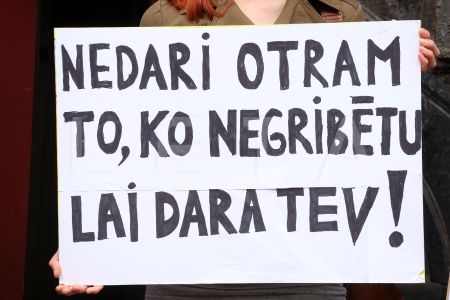 NEDARI OTRAM
TO, KO NEGRIBĒTU
LAI DARA TEV!